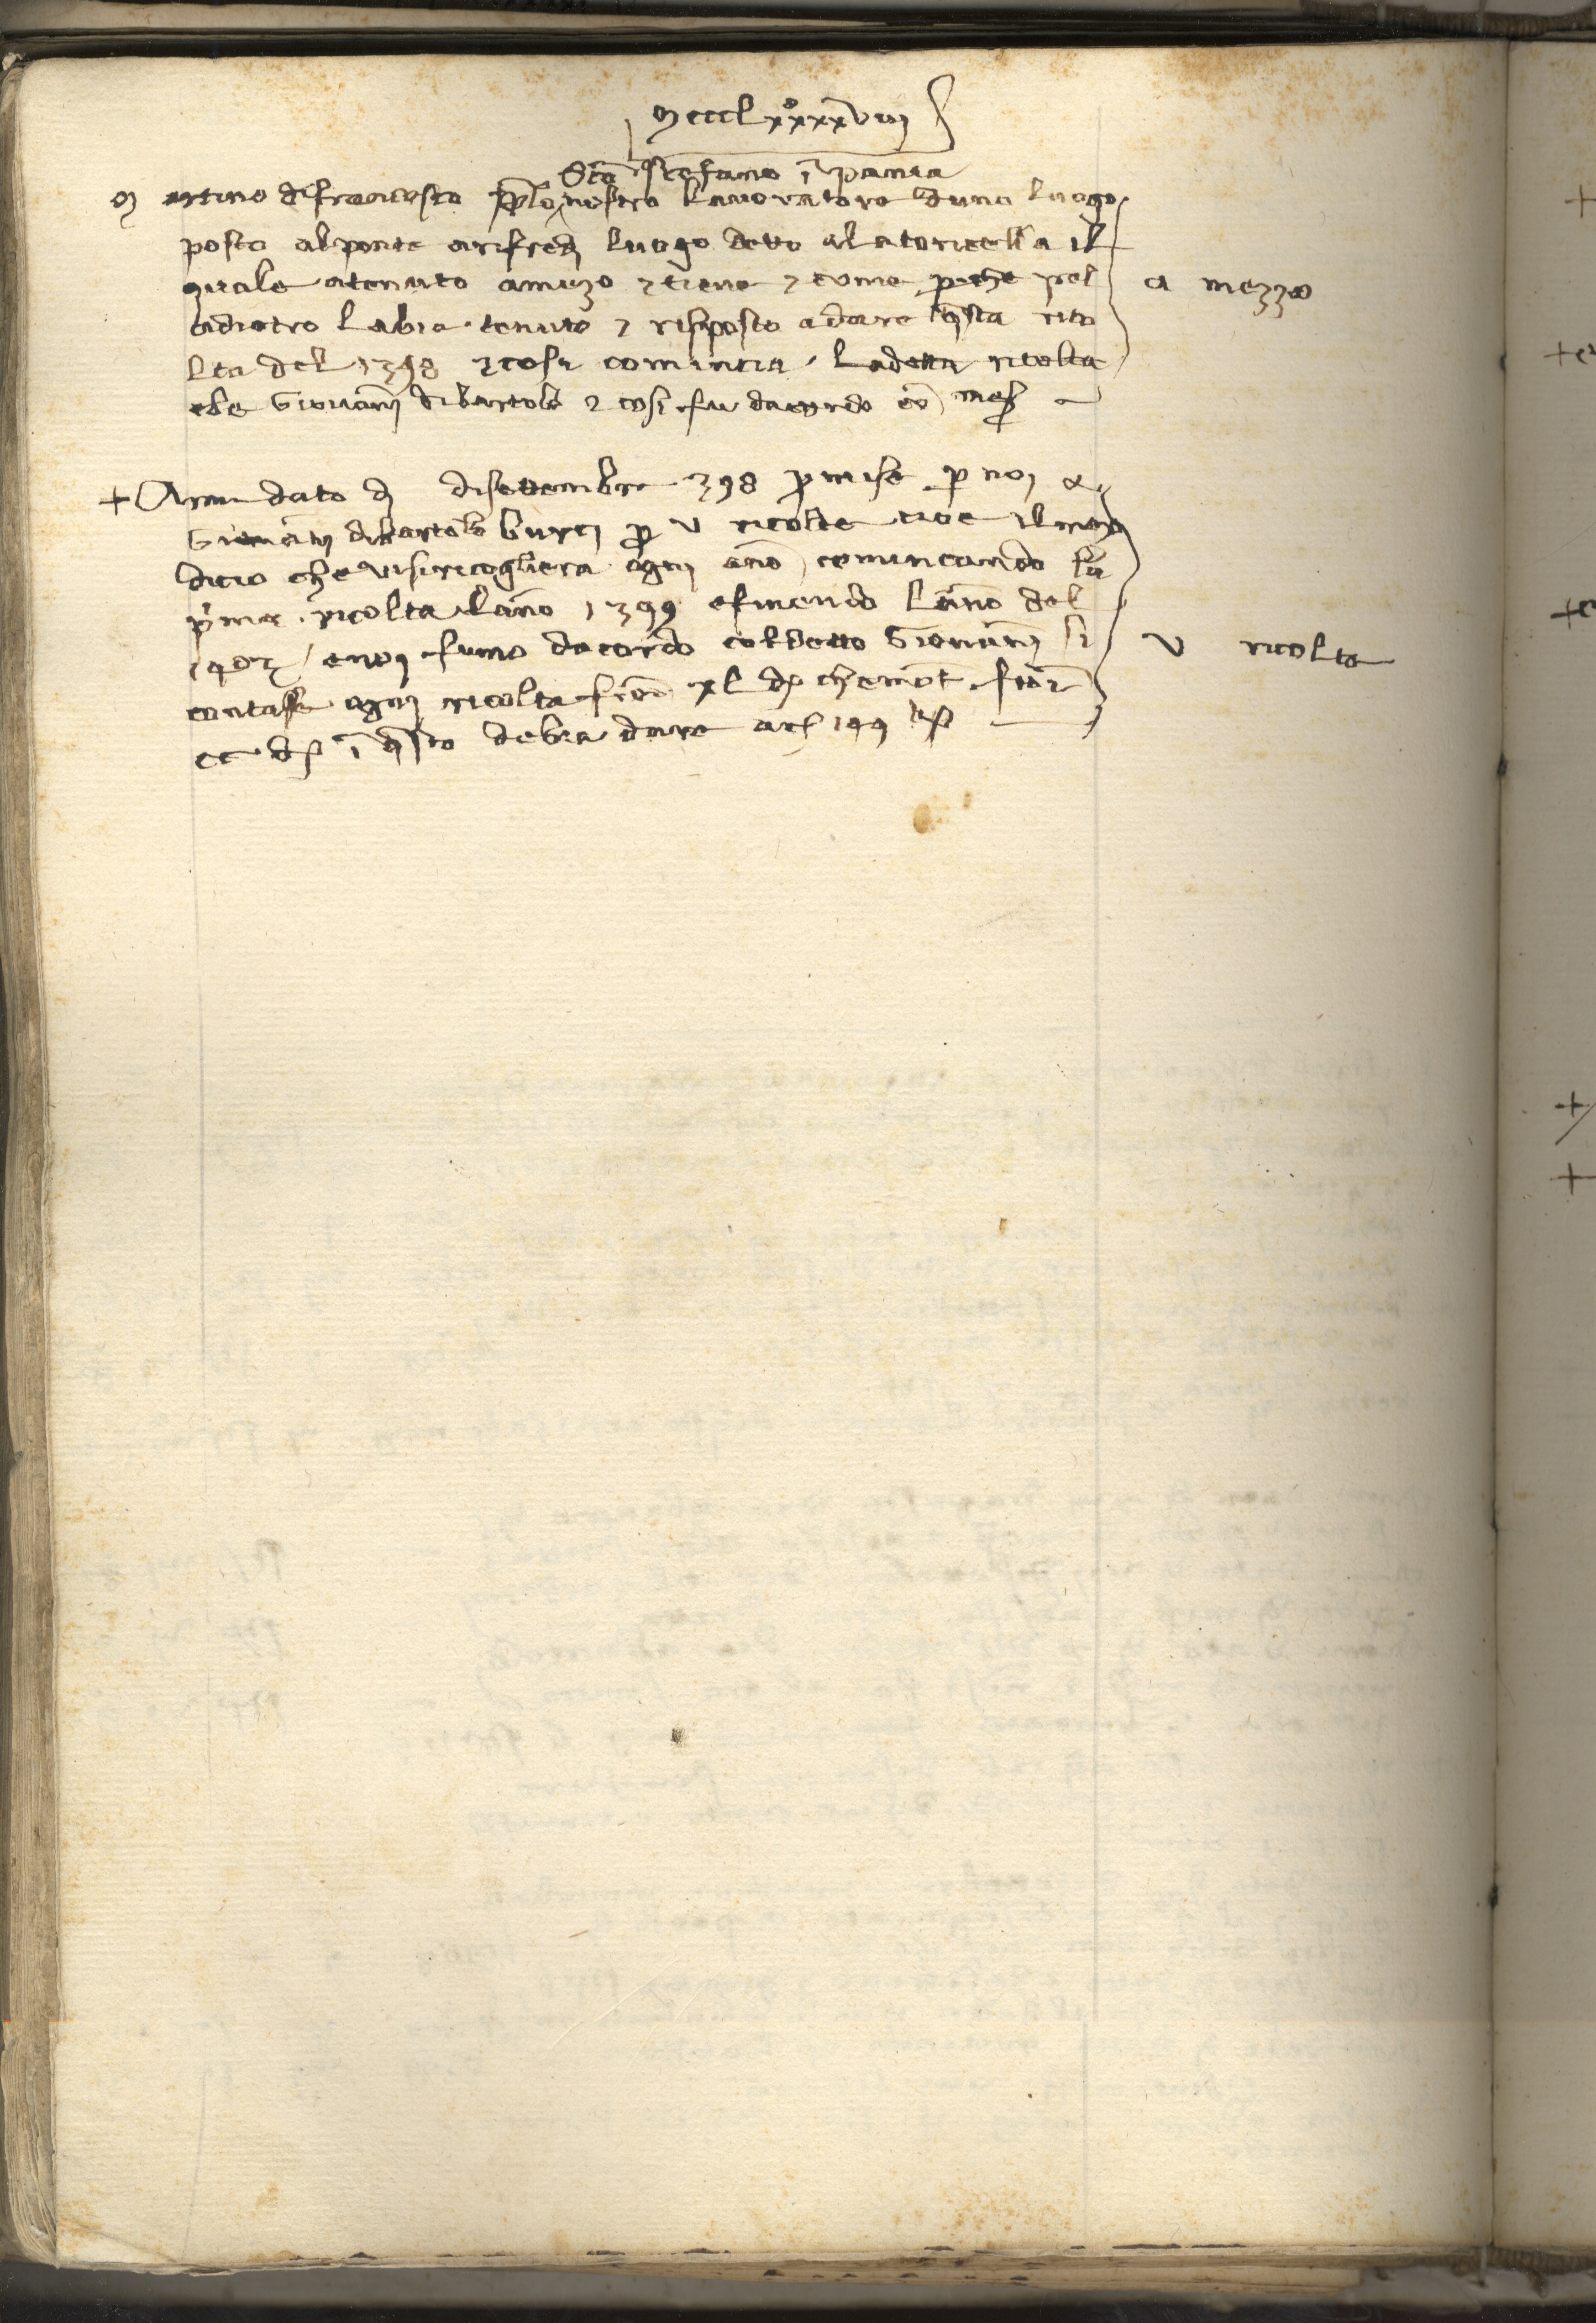 mccclxxxxviii
Sco Stefano ī pania
Martino di franciescho pplo nostro lavoratore duno luogo
posto al ponte arifredi luogo detto alatoricella il
quale a tenuto amezo e tiene e come perche pel
adietro labia tenuto e risposto a dare qsta rico
lta del 1398 e cosi comincia ladetta ricolta
ebe Giovāni di bartolo e cosi fu dacordo cō
a mezzo
+ dato di settembre 398 promise p noi a
Giovāni di bartolo burci p v ricolte cioe il
dicio che visi ricogliera ogni āno cominciando la
pima ricolta lāno 1399 e finendo lāno del
1403 e noi fumo dacordo col detto Giovāni si
contasse ogni ricolta fior xl dō che mōt fior
cc dō ī qsto debia dare a c 199
v ricolte